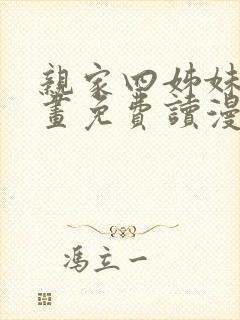 親家四姊妹
畫免費讀漫
馮立一